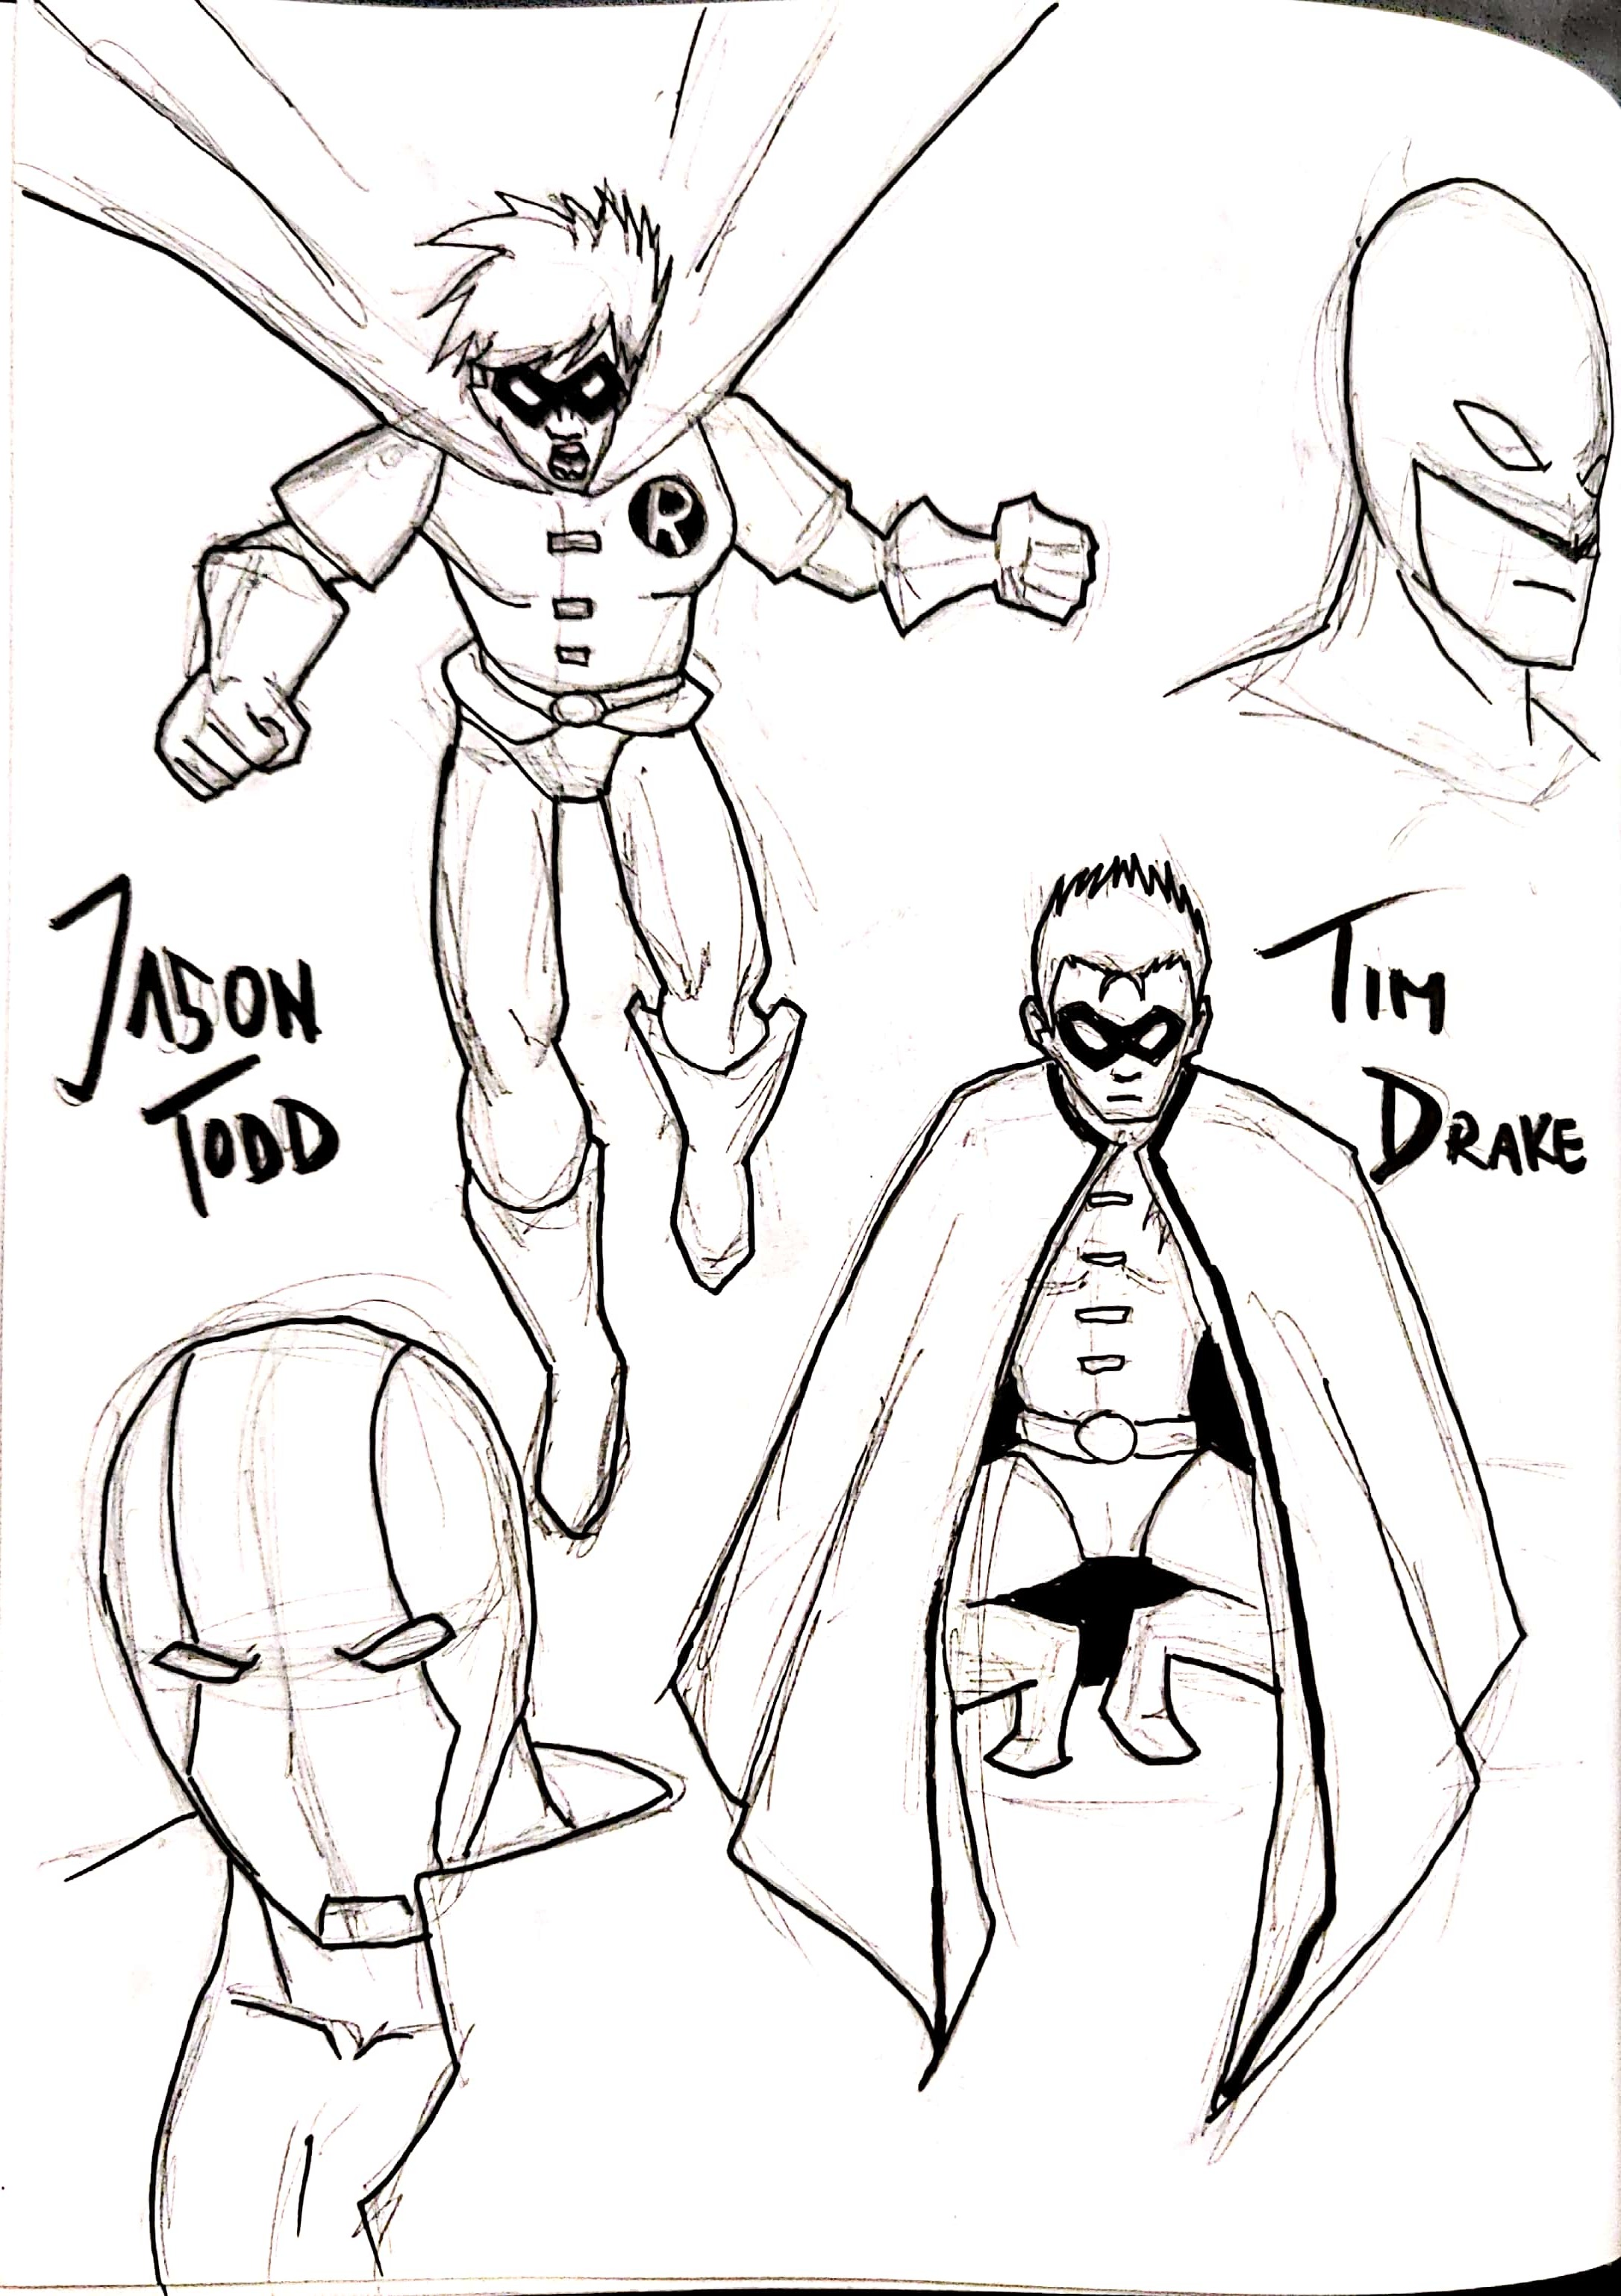 R
JASON
TODD
TIM
DRAKE